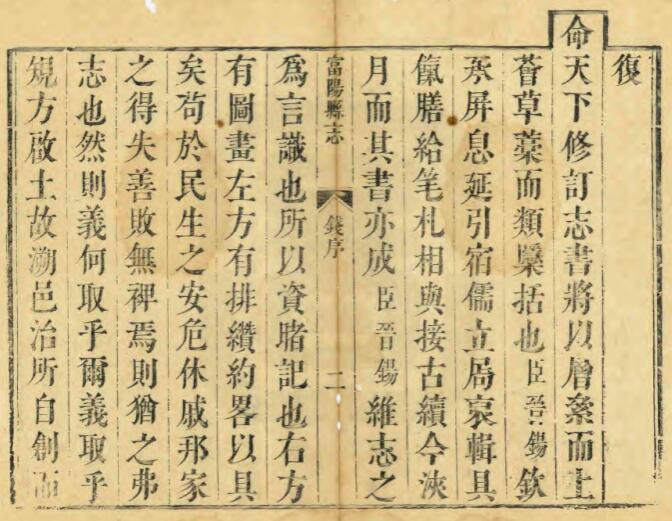 復
命天下修訂志書將以層絫而上
薈草藁而類檃括也臣晉錫欽
承屏息延引宿儒立局裒輯具
餼膳給笔札相與接古續今浹
月而其書亦成臣晉錫維志之
富陽縣志 錢序 二
爲言識也所以資睹記也右方
有圖畫左方有排纘約畧以具
矣苟於民生之安危休戚邦家
之得失善敗無裨焉則猶之弗
志也然則義何取乎爾義取乎
規方啟土故溯邑治所自創而